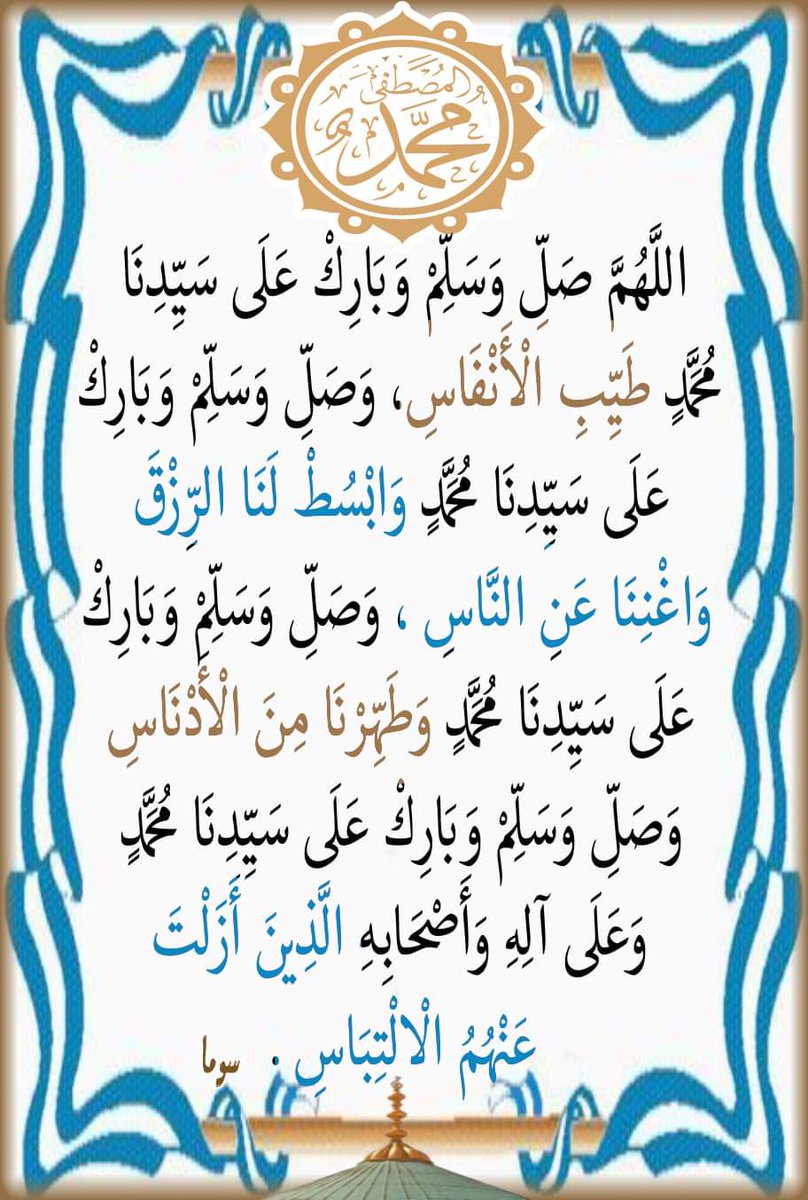 المصطفى
محمد
اللَّهُمَّ صَلِّ وَسَلِّمْ وَبَارِكْ عَلَى سَيِّدِنَا
مُحَمَّدٍ طَيِّبِ الْأَنْفَاسِ، وَصَلِّ وَسَلِّمْ وَبَارِكْ
عَلَى سَيِّدِنَا مُحَمَّدٍ وَابْسُطْ لَنَا الرِّزْقَ
وَاغْنِنَا عَنِ النَّاسِ ، وَصَلِّ وَسَلِّمْ وَبَارِكْ
عَلَى سَيِّدِنَا مُحَمَّدٍ وَطَهِّرْنَا مِنَ الْأَدْنَاسِ
وَصَلِّ وَسَلِّمْ وَبَارِكْ عَلَى سَيِّدِنَا مُحَمَّدٍ
وَعَلَى آلِهِ وَأَصْحَابِهِ الَّذِينَ أَزَلْتَ
عَنْهُمُ الْالْتِبَاسِ . سوما